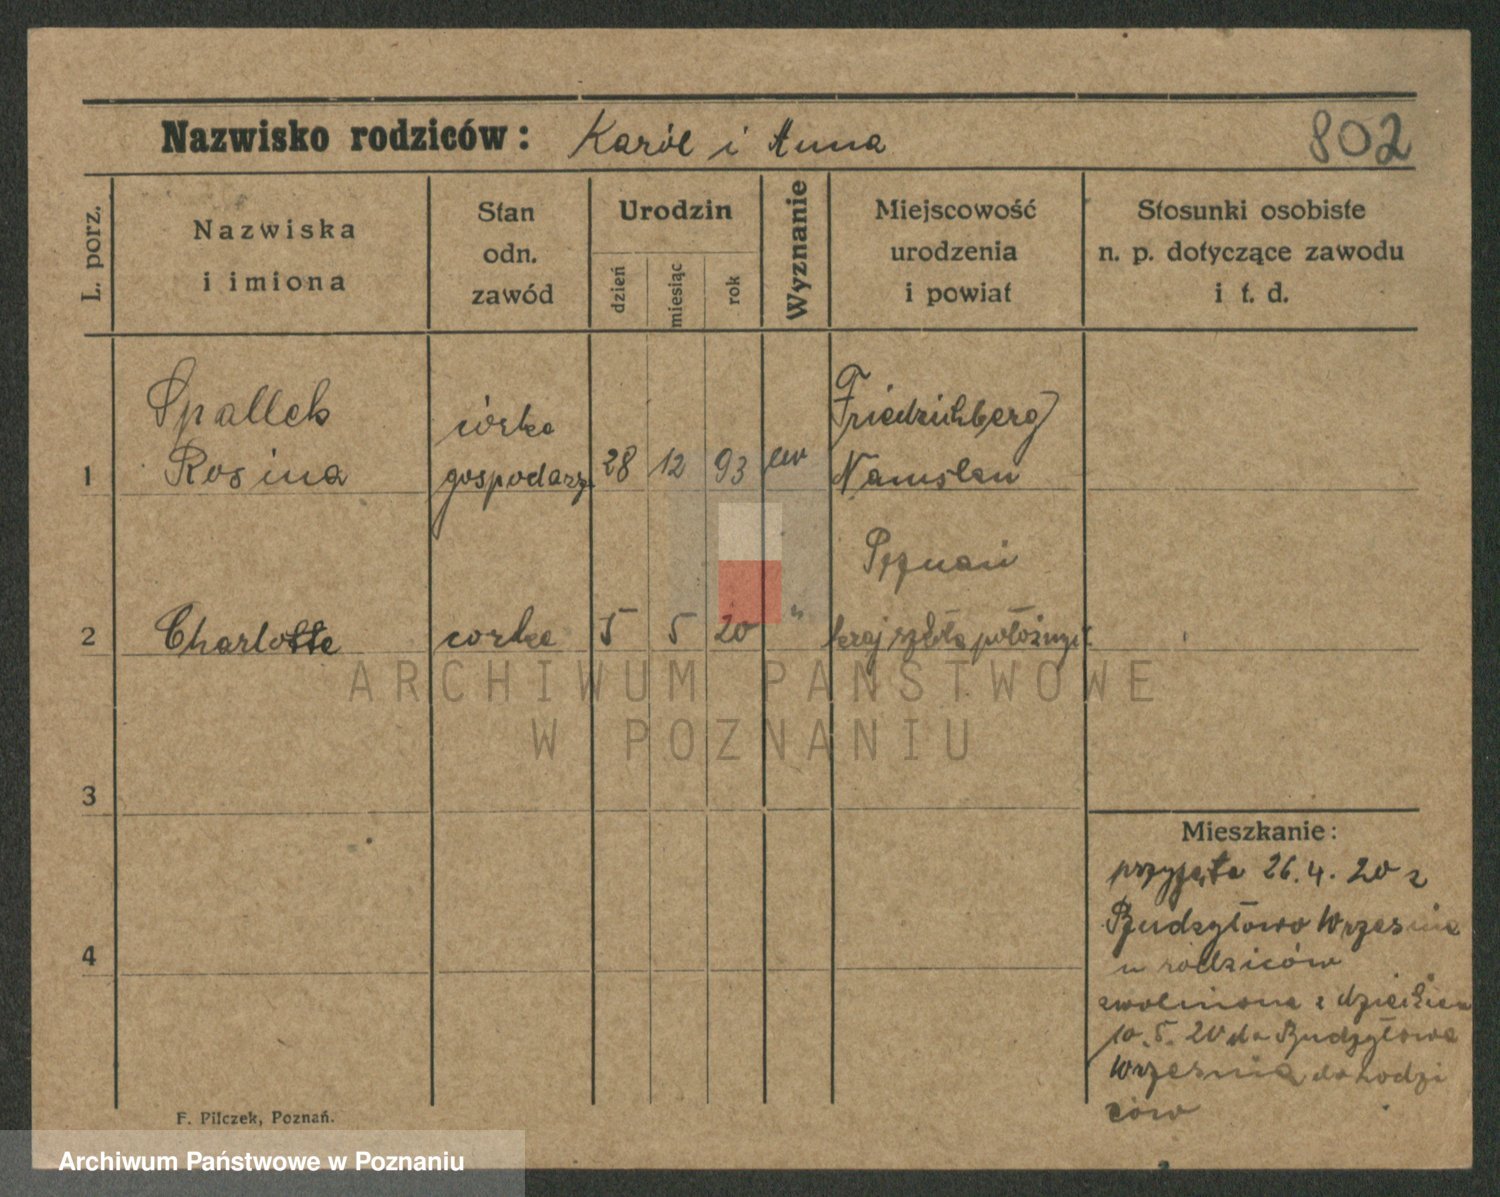 Nazwisko rodziców: Karól i Anna
802
L. porz.
Nazwiska
i imiona
Stan
odn.
zawód
Urodzin
dzień
miesiąc
rok
Wyznanie
Miejscowość
urodzenia
i powiat
Stosunki osobiste
n. p. dotyczące zawodu
i t. d.
1
Spallek
Rosina
córka
gospodarz.
28 12 93
ew
Friedrichberg
Namslau
2
Charlotte
corka
5 5 20
"
Poznań
kraj szkoła położnych
3
4
Mieszkanie:
przyjęta 26.4.20 z
Budzyłowo Wrzesnia
u rodziców
zwolniona z dzieckiem
10.5.20 do Budzyłowa
Wrzesnia do rodzi
ców
F. Pilczek, Poznań.
ARCHIWUM PAŃSTWOWE
W POZNANIU
Archiwum Państwowe w Poznaniu